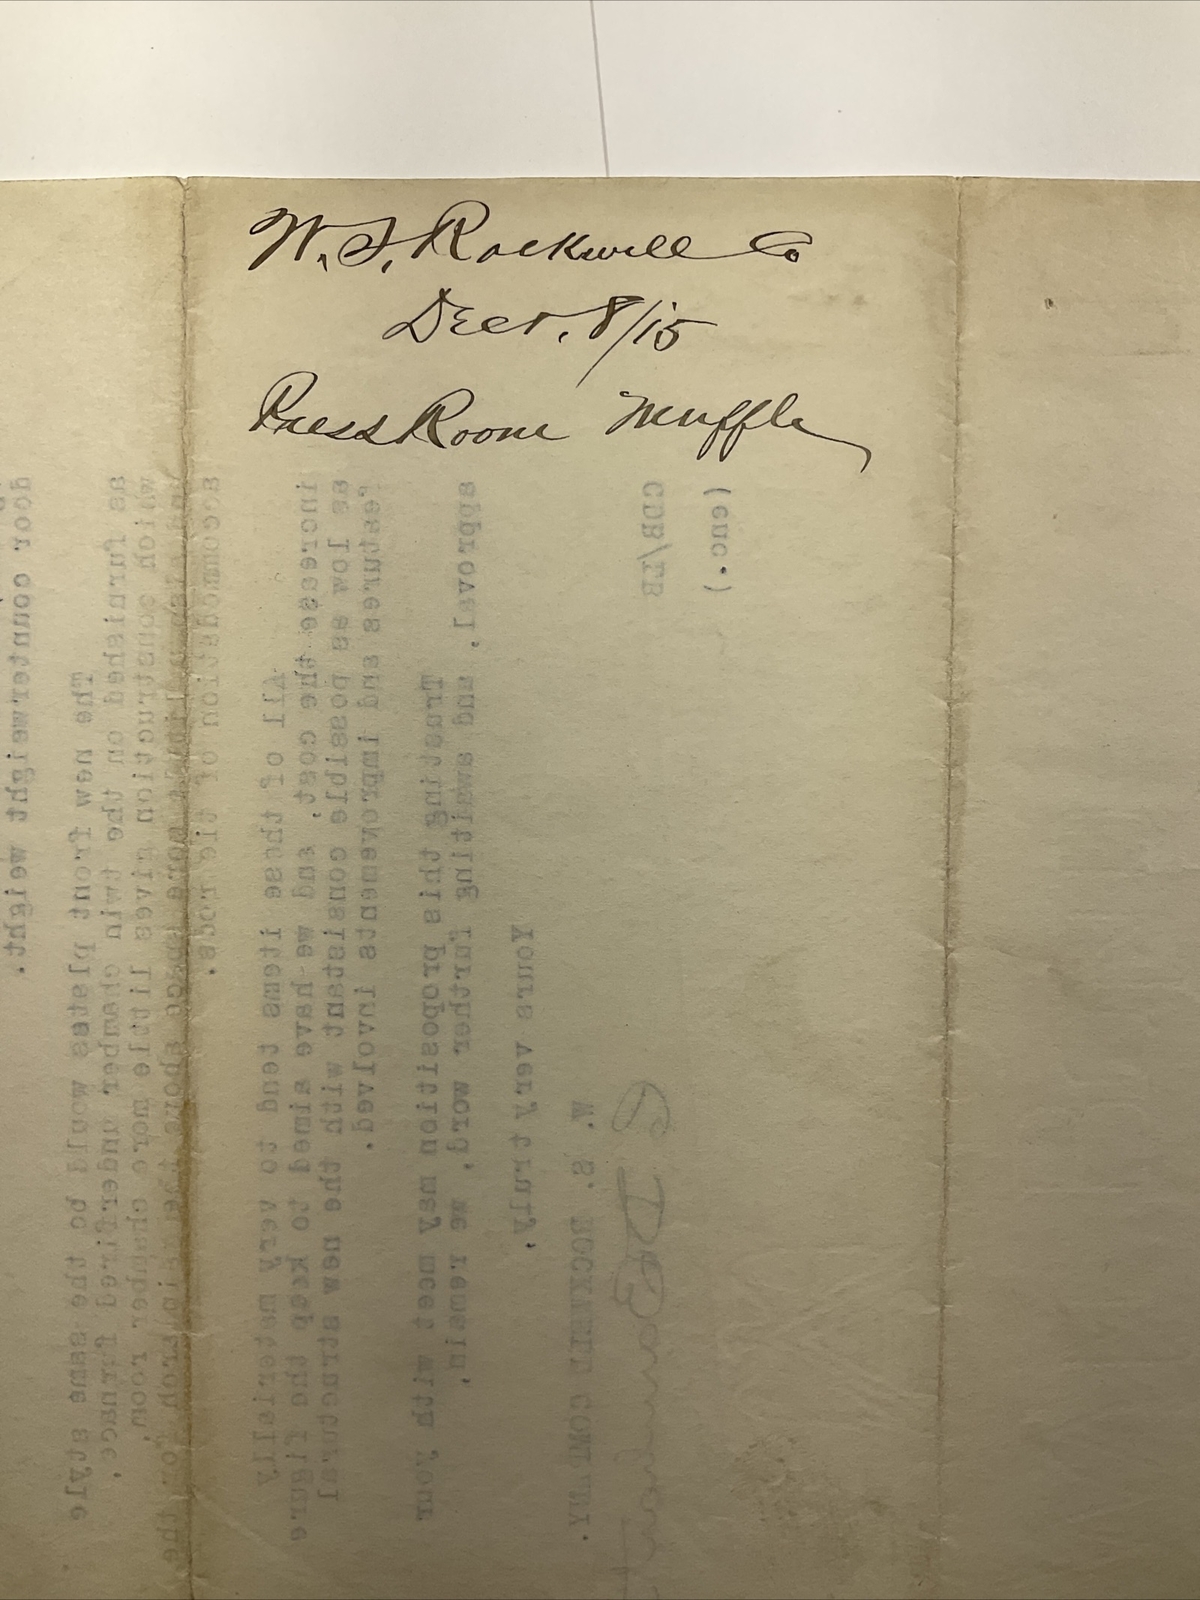 W. S. Rockwell Co
Dec. 8/15
Press Room Muffle
door counterweight weight.
The new front plates would be the same style
as furnished on the twin chamber underfired furnace,
which construction gives little more chamber room,
more space above the the
accommodation of tie rods.
All of these items tend to very materially
increase the cost, and we have aimed to keep the figure
as low as possible consistant with the new structural
features and improvements involved.
Trusting this proposition may meet with your
approval, and awaiting further word, we remain,
Yours very truly,
W. S. ROCKWELL COMPANY.
CDB/LB
(enc.)